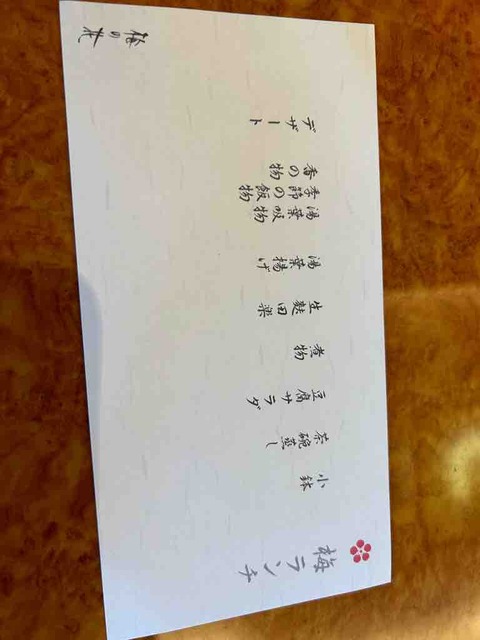 梅ランチ
小鉢
茶碗蒸し
豆腐サラダ
煮物
生麩田楽
湯葉揚げ
湯葉吸物
季節の飯物
香の物
デザート
梅の花